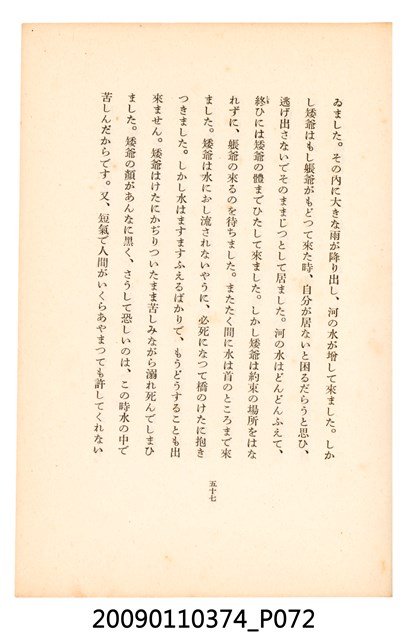 ゐました。その內に大きな雨が降り出し、河の水が增して來ました。しか
し矮爺はもし賬爺がもどつて來た時、自分が居ないと困るだらうと思ひ、
逃げ出さないでそのままじつとして居ました。河の水はどんどんふえて、
終ひには矮爺の體までひたして來ました。しかし矮爺は約束の場所をはな
れずに、賬爺の來るのを待ちました。またたく間に水は首のところまで來
ました。矮爺は水におし流されないやうに、必死になつて橋のけたに抱き
つきました。しかし水はますますふえるばかりで、もうどうすることも出
來ません。矮爺はけたにかぢりついたまま苦しみながら溺れ死んでしまひ
ました。矮爺の顏があんなに黑く、さうして恐しいのは、この時水の中で
苦しんだからです。又、短氣で人間がいくらあやまつても許してくれない
五十七
20090110374_P072